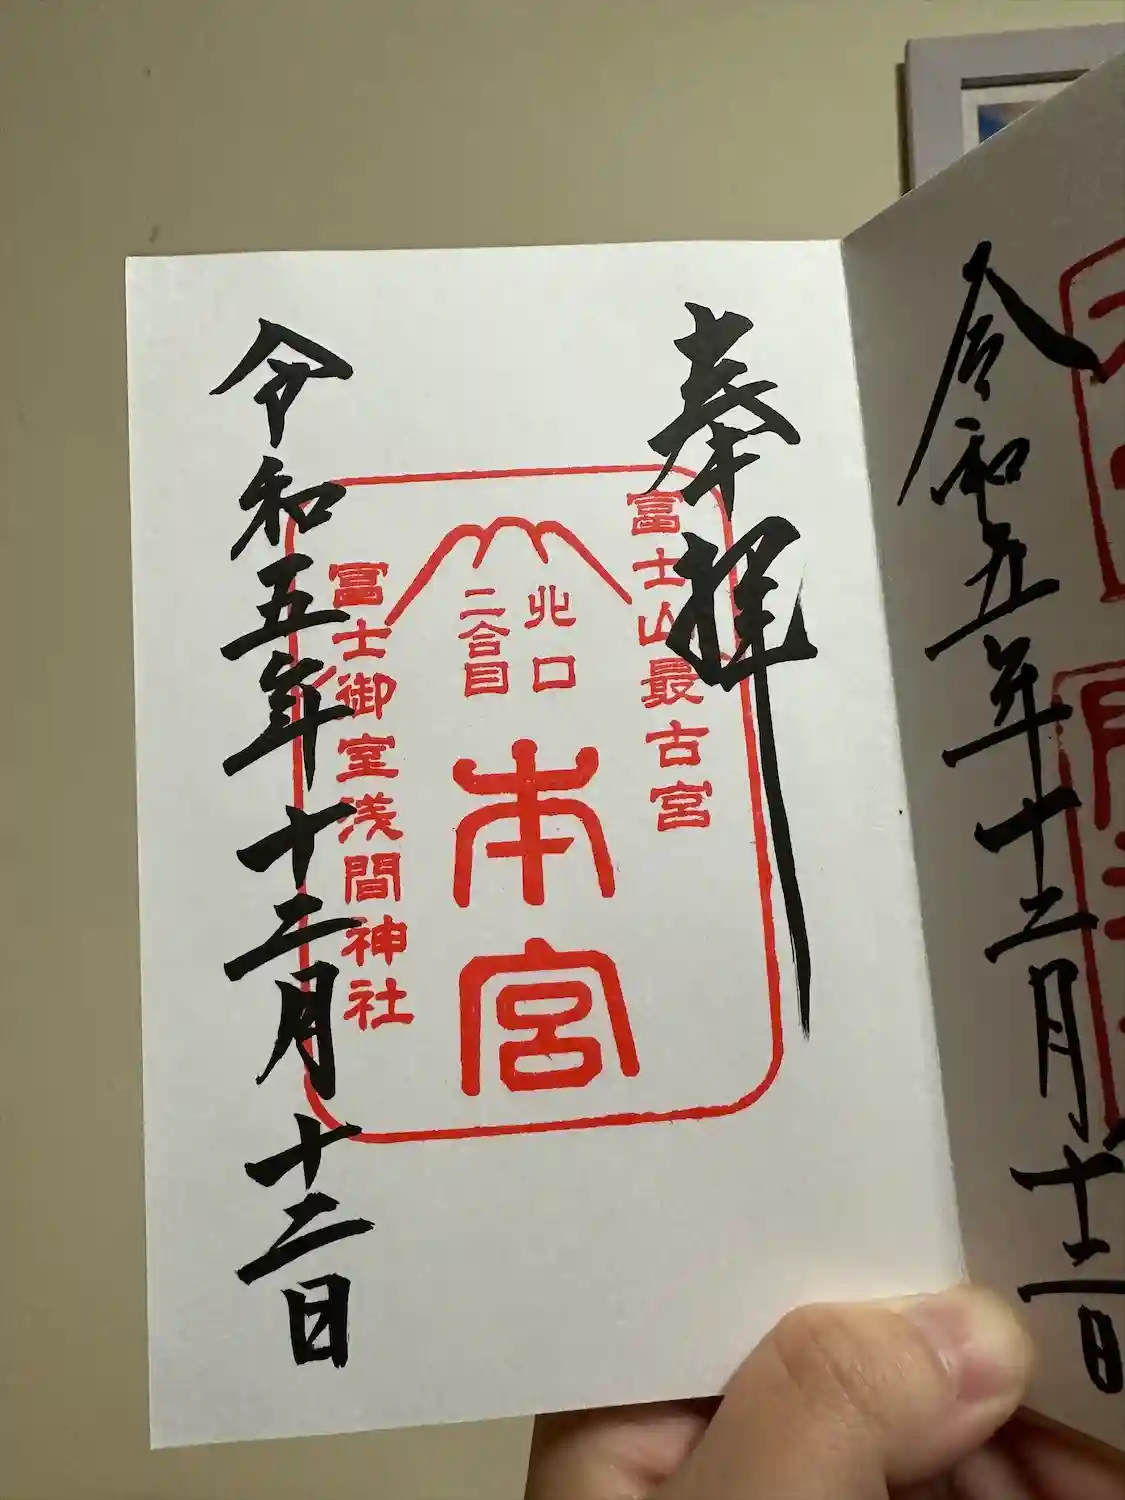 令和五年十二月十二日
奉拝
富士山最古宮
北口
二合目
本宮
富士御室浅間神社
令和五年十二月十二日